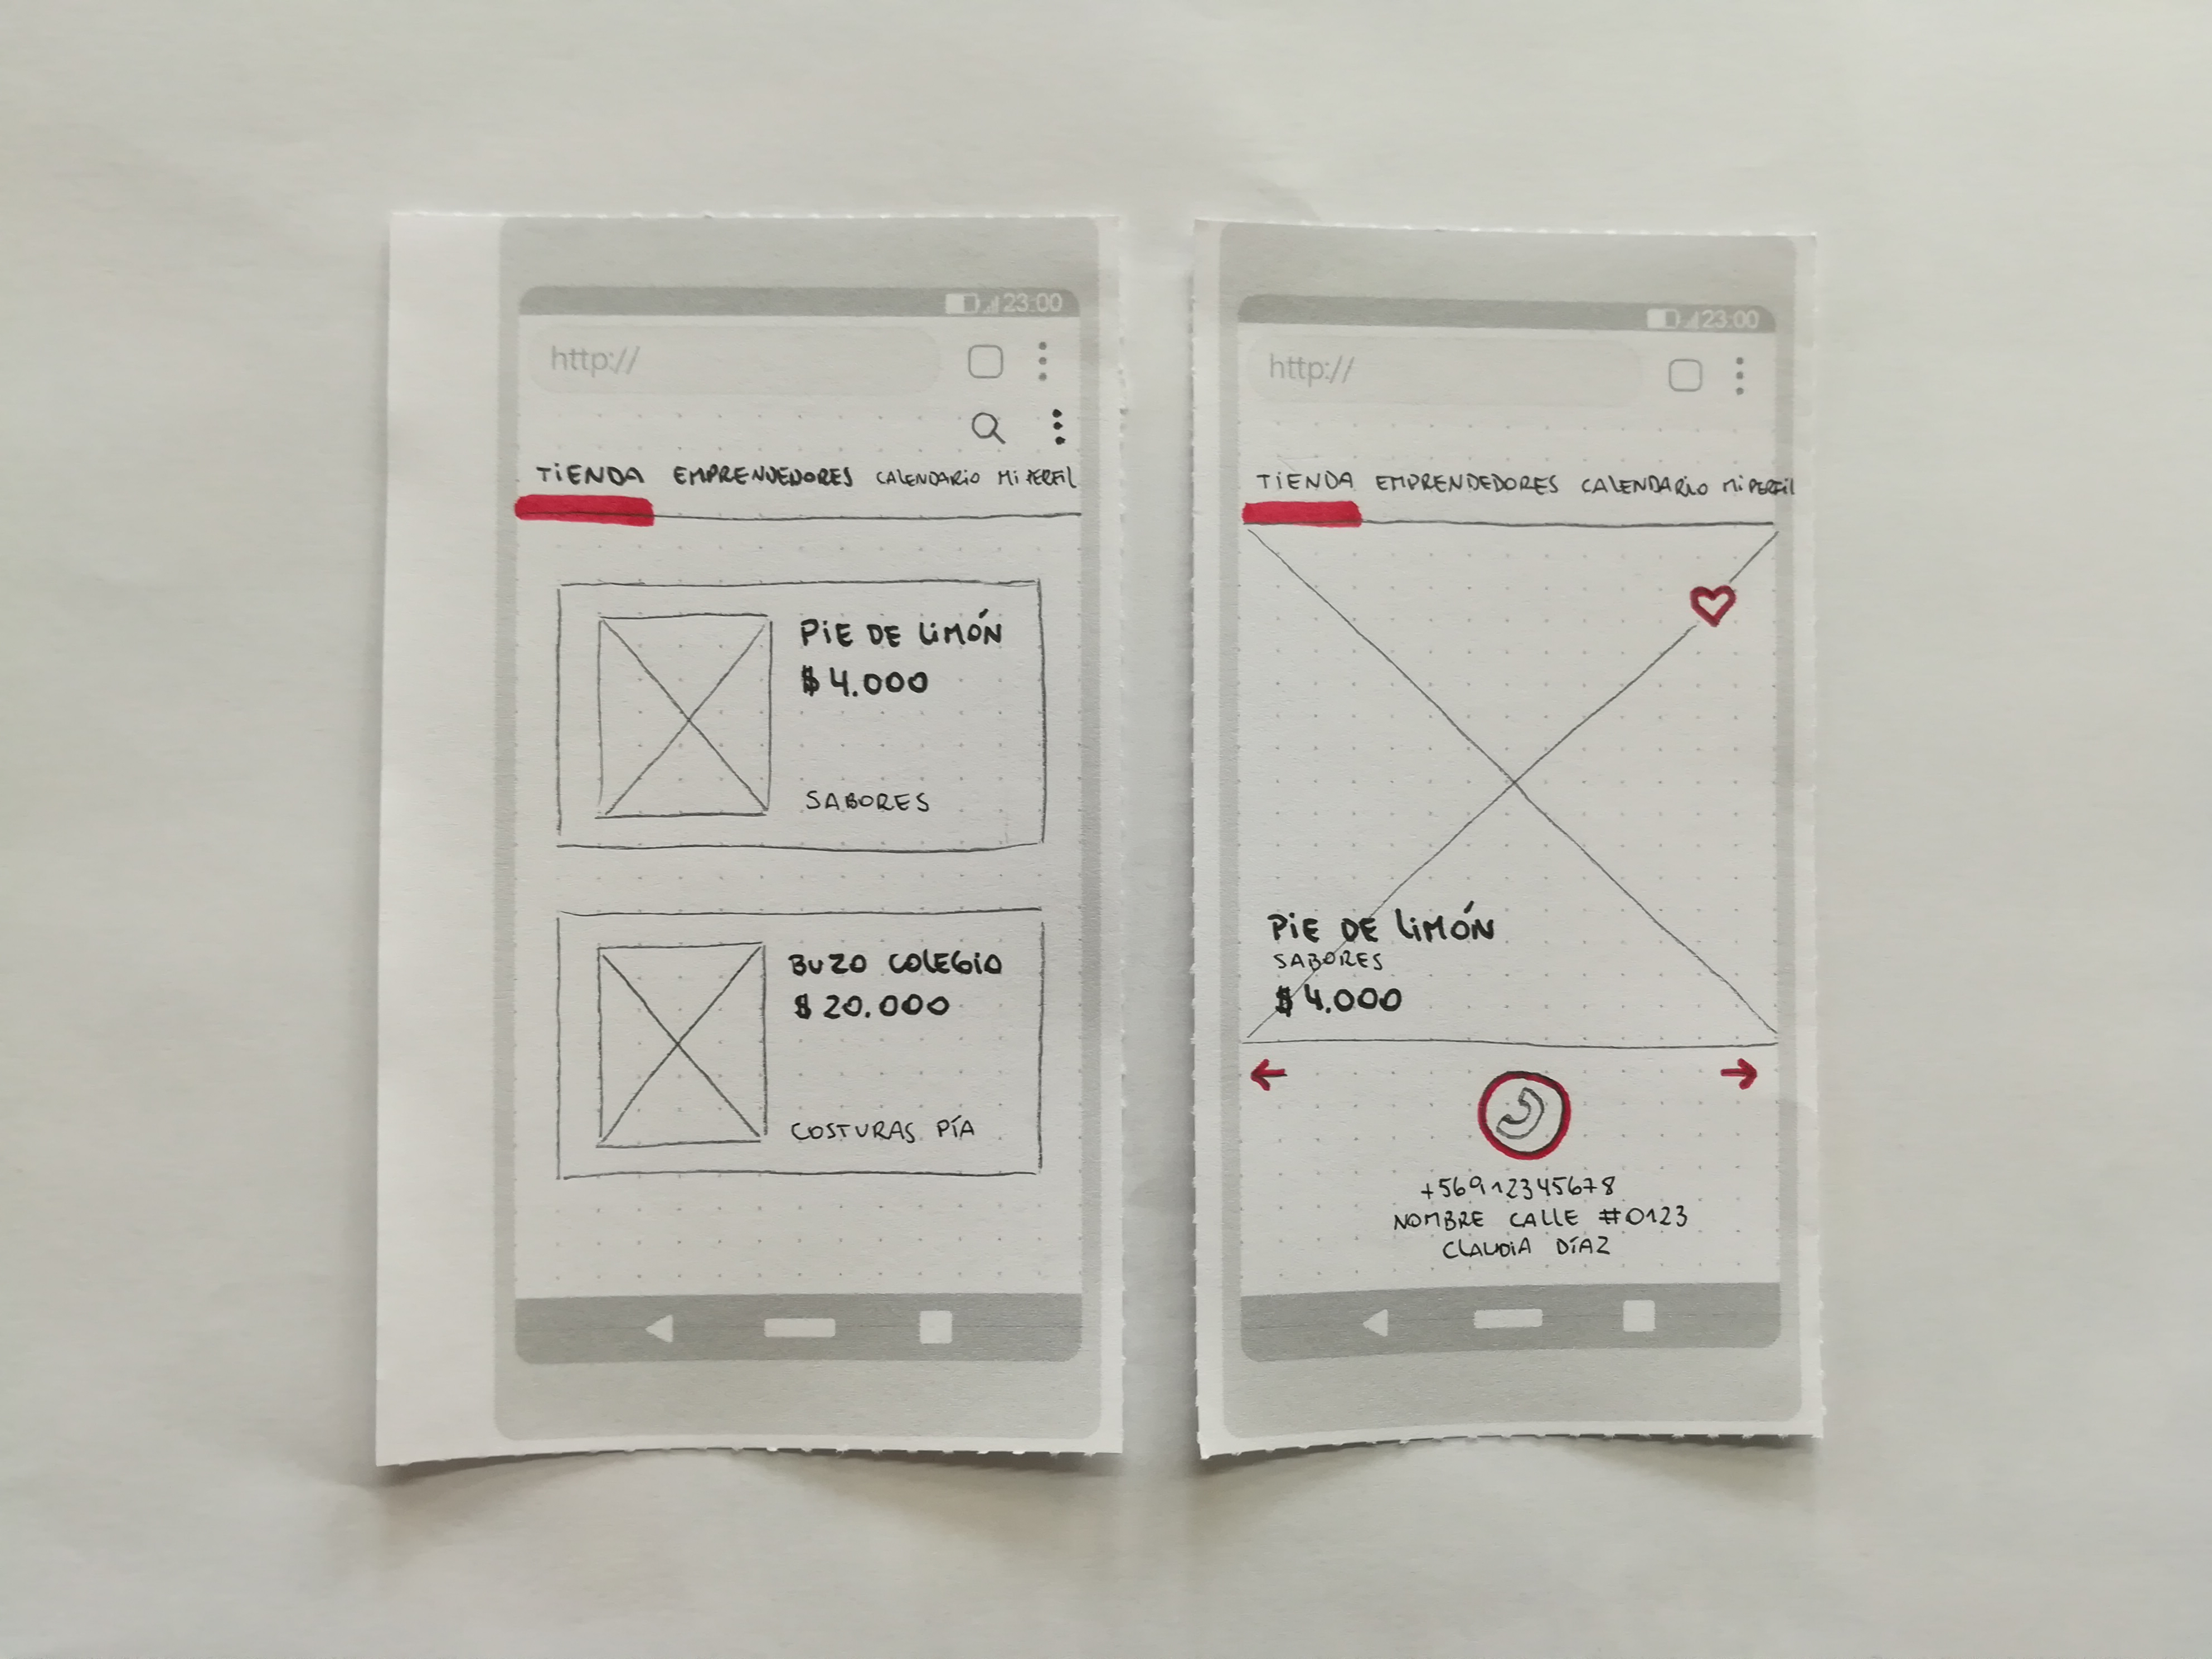 23:00
http://
TIENDA EMPRENDEDORES CALENDARIO MI PERFIL
PIE DE LIMÓN
$ 4.000
SABORES
BUZO COLEGIO
$ 20.000
COSTURAS PÍA
23:00
http://
TIENDA EMPRENDEDORES CALENDARIO MI PERFIL
PIE DE LIMÓN
SABORES
$ 4.000
+56912345678
NOMBRE CALLE #0123
CLAUDIA DÍAZ